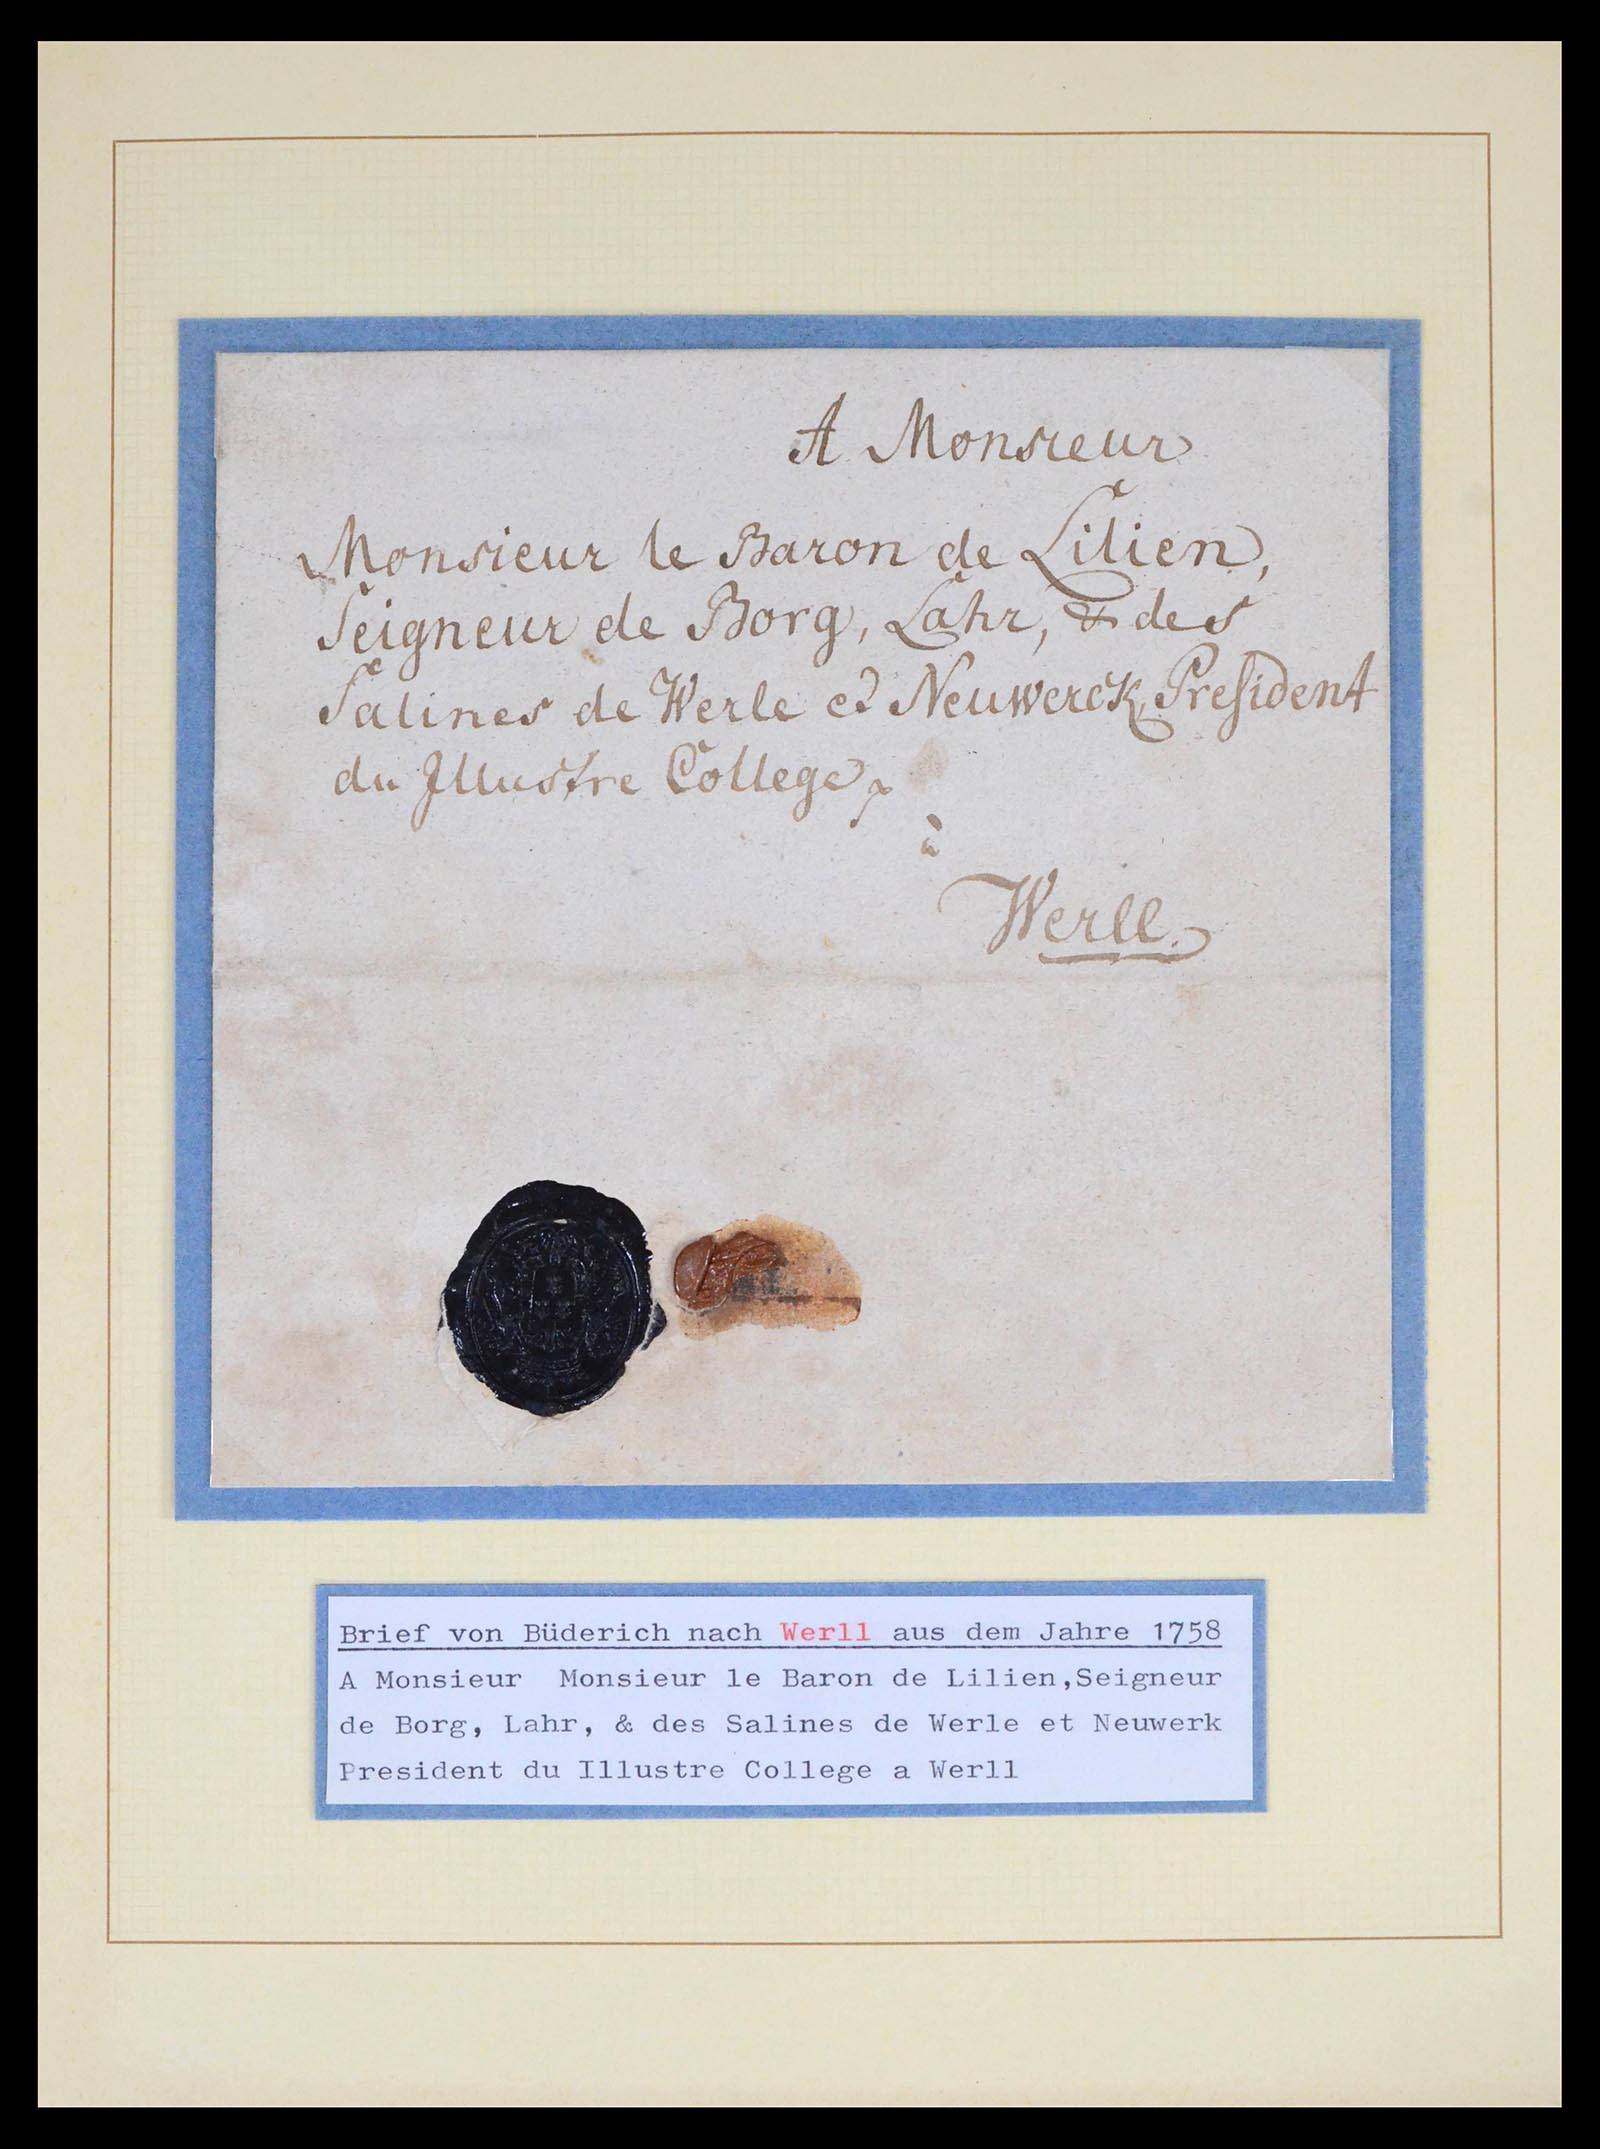 A Monsieur
Monsieur le Baron de Lilien,
Seigneur de Borg, Lahr, & des
Salines de Werle et Neuwerck President
du Illustre College
à
Werll.
Brief von Büderich nach Werll aus dem Jahre 1758
A Monsieur  Monsieur le Baron de Lilien,Seigneur
de Borg, Lahr, & des Salines de Werle et Neuwerk
President du Illustre College a Werll